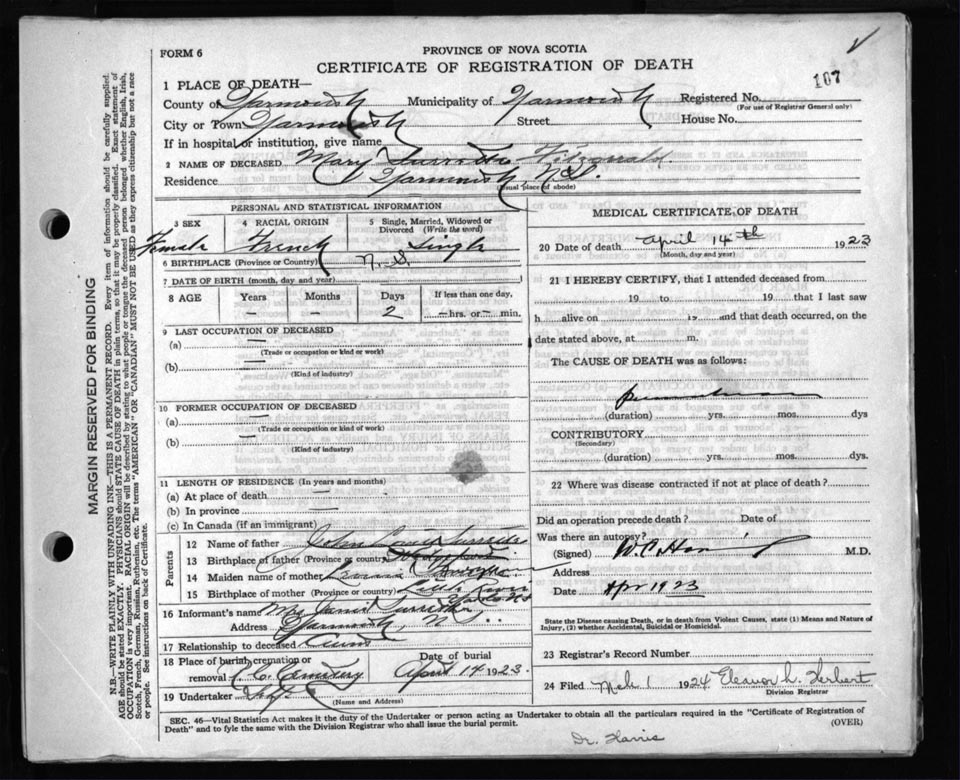 FORM 6
PROVINCE OF NOVA SCOTIA
CERTIFICATE OF REGISTRATION OF DEATH
107
1 PLACE OF DEATH—
County of Yarmouth Municipality of Yarmouth Registered No.
(For use of Registrar General only)
City or Town Yarmouth Street House No.
If in hospital or institution, give name
2 NAME OF DECEASED Mary Surrette Fitzgerald
Residence Yarmouth, N.S.
(Usual place of abode)
PERSONAL AND STATISTICAL INFORMATION
3 SEX 4 RACIAL ORIGIN 5 Single, Married, Widowed or Divorced (Write the word)
Female French Single
6 BIRTHPLACE (Province or Country) N.S.
7 DATE OF BIRTH (month, day and year)
8 AGE Years Months Days If less than one day,
— — 2 —hrs. or — min.
9 LAST OCCUPATION OF DECEASED
(a) —
(Trade or occupation or kind or work)
(b) —
(Kind of industry)
10 FORMER OCCUPATION OF DECEASED
(a) —
(Trade or occupation or kind of work)
(b) —
(Kind of industry)
11 LENGTH OF RESIDENCE (In years and months)
(a) At place of death —
(b) In province —
(c) In Canada (if an immigrant)
Parents
12 Name of father John Louis Surrette
13 Birthplace of father (Province or country)
14 Maiden name of mother
15 Birthplace of mother (Province or country)
16 Informant's name Mrs Surrette
Address Yarmouth, N.S.
17 Relationship to deceased Aunt
18 Place of burial, cremation or removal R.C. Cemetery Date of burial April 14 1923.
19 Undertaker
(Name and Address)
MEDICAL CERTIFICATE OF DEATH
20 Date of death April 14th 1923
(Month, day and year)
21 I HEREBY CERTIFY, that I attended deceased from
19 to 19 that I last saw
h alive on 19 and that death occurred, on the
date stated above, at m.
The CAUSE OF DEATH was as follows:
(duration) yrs. mos. dys
CONTRIBUTORY
(Secondary)
(duration) yrs. mos. dys.
22 Where was disease contracted if not at place of death?
Did an operation precede death? Date of
Was there an autopsy?
(Signed) M.D.
Address
Date Apr 19 23
State the Disease causing Death, or in death from Violent Causes, state (1) Means and Nature of Injury, (2) whether Accidental, Suicidal or Homicidal.
23 Registrar's Record Number
24 Filed 1 1924 Eleanor L. Herbert
Division Registrar
SEC. 46—Vital Statistics Act makes it the duty of the Undertaker or person acting as Undertaker to obtain all the particulars required in the "Certificate of Registration of
Death" and to fyle the same with the Division Registrar who shall issue the burial permit. (OVER)
Dr. Harris
MARGIN RESERVED FOR BINDING
N.B.—WRITE PLAINLY WITH UNFADING INK—THIS IS A PERMANENT RECORD. Every item of information should be carefully supplied.
AGE should be stated EXACTLY. PHYSICIANS should STATE CAUSE OF DEATH in plain terms, so that it may be properly classified. Exact statement of
OCCUPATION is very important. RACIAL ORIGIN will be described by stating to what people or tongue the deceased person belonged whether English, Irish,
Scotch, French, German, Russian, Ruthenian, etc. The terms "AMERICAN" OR "CANADIAN" MUST NOT BE USED as they express citizenship but not a race
or people. See instructions on back of Certificate.